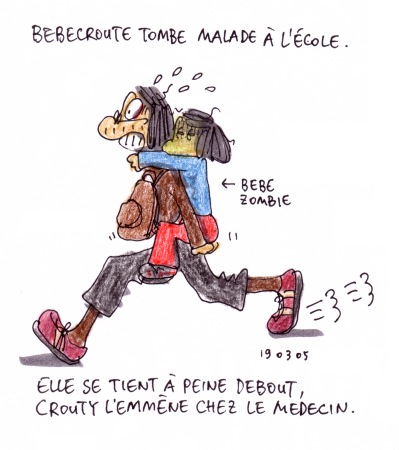 BEBECROUTE TOMBE MALADE À L'ÉCOLE.
← BEBE
ZOMBIE
19 03 05
ELLE SE TIENT À PEINE DEBOUT,
CROUTY L'EMMÈNE CHEZ LE MEDECIN.